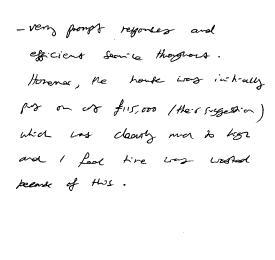 - very prompt responses and
efficient service throughout.
However, the house was initially
put on at £115,000 (their suggestion)
which was clearly much too high
and I feel time was wasted
because of this.